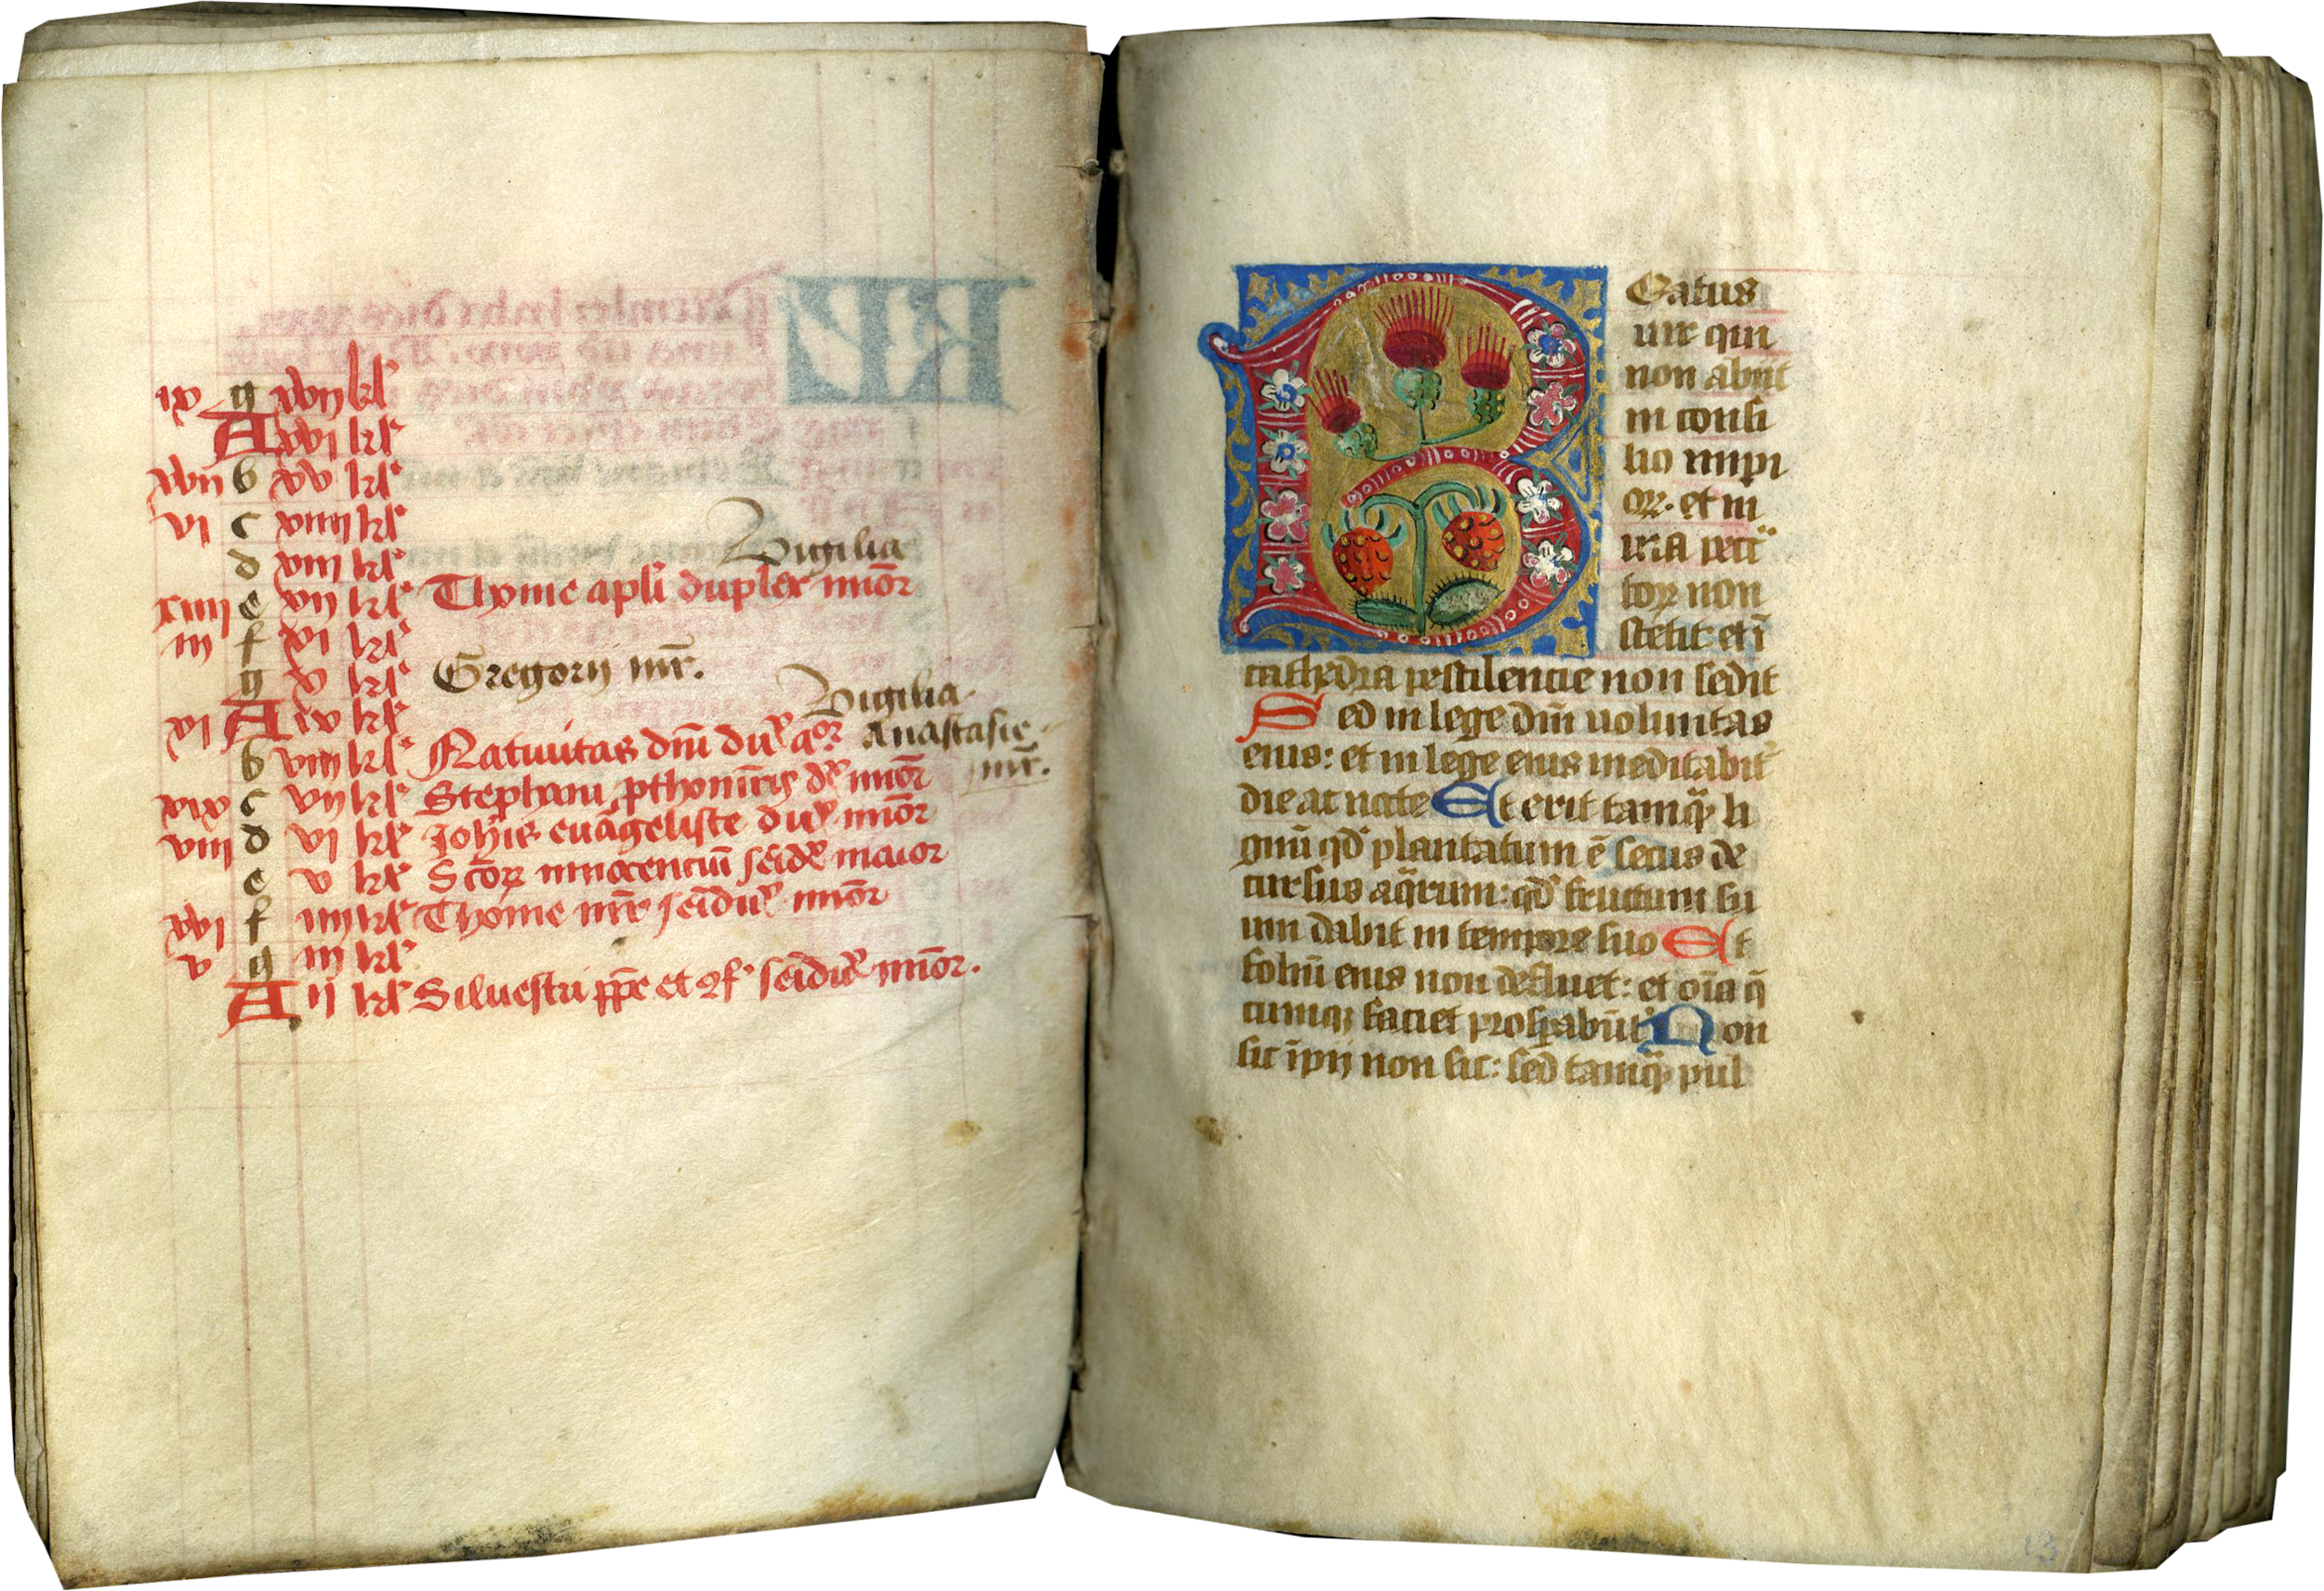 ix g xvij kl'
A xvi kl'
xvij b xv kl'
vi c xiiij kl'
d xiij kl'
Vigilia
xiiij e xij kl' Thome apl'i duplex min̄or
iij f xi kl'
g x kl' Gregorij mr̄.
Vigilia.
xi A ix kl'
b viij kl' Natiuitas dn̄i du' Anastasie
mr̄.
xix c vij kl' Stephani pthomr̄is min̄or
viij d vi kl' Joh'is euāgeliste du' min̄or
e v kl' Sc̄oꝝ innocenciū maior
xvi f iiij kl' Thome mr̄ min̄or
v g iij kl'
A ij kl' Siluestri pp̄e et min̄or.
Beatus
uir qui
non abiit
in consi
lio impi
oꝝ. et in
uia pecc̄
toꝝ non
stetit et ī
cathedra pestilencie non sedit
Sed in lege dn̄i uoluntas
eius: et in lege eius meditabit'
die ac nocte Et erit tamq̄ li
gnū qd' plantatum ē secus de
cursus aq̄rum: qd' fructum su
um dabit in tempore suo Et
foliū eius non defluet: et oīa q̄
cumqꝫ faciet ꝓsꝑabūt' Non
sic īpij non sic: sed tamq̄ pul
13